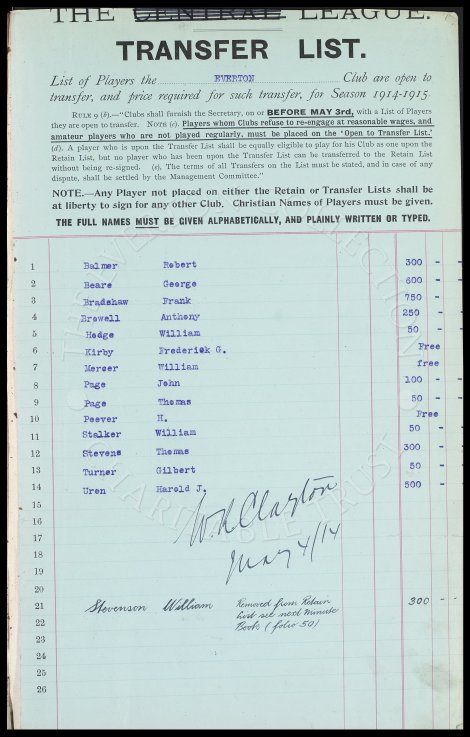 THE CENTRAL LEAGUE.
TRANSFER LIST.
List of Players the EVERTON Club are open to
transfer, and price required for such transfer, for Season 1914-1915.
RULE 9 (b).—"Clubs shall furnish the Secretary, on or BEFORE MAY 3rd, with a List of Players
they are open to transfer. NOTE (c). Players whom Clubs refuse to re-engage at reasonable wages, and
amateur players who are not played regularly, must be placed on the 'Open to Transfer List.'
(d). A player who is upon the Transfer List shall be equally eligible to play for his Club as one upon the
Retain List, but no player who has been upon the Transfer List can be transferred to the Retain List
without being re-signed. (e). The terms of all Transfers on the List must be stated, and in case of any
dispute, shall be settled by the Management Committee."
NOTE.—Any Player not placed on either the Retain or Transfer Lists shall be
at liberty to sign for any other Club. Christian Names of Players must be given.
THE FULL NAMES MUST BE GIVEN ALPHABETICALLY, AND PLAINLY WRITTEN OR TYPED.
1 Balmer Robert 300 - -
2 Beare George 600 - -
3 Bradshaw Frank 750 - -
4 Browell Anthony 250 - -
5 Hodge William 50 - -
6 Kirby Frederick G. Free
7 Mercer William free
8 Page John 100 - -
9 Page Thomas 50 - -
10 Peever H. Free
11 Stalker William 50 - -
12 Stevens Thomas 300 - -
13 Turner Gilbert 50 - -
14 Uren Harold J. 500 - -
15
16 W.R Clayton
17
18 May 4/14
19
20
21 Stevenson William Removed from Retain 300 - -
List see next Minute
22 Book (folio 50)
23
24
25
26
THE EVERTON COLLECTION
CHARITABLE TRUST